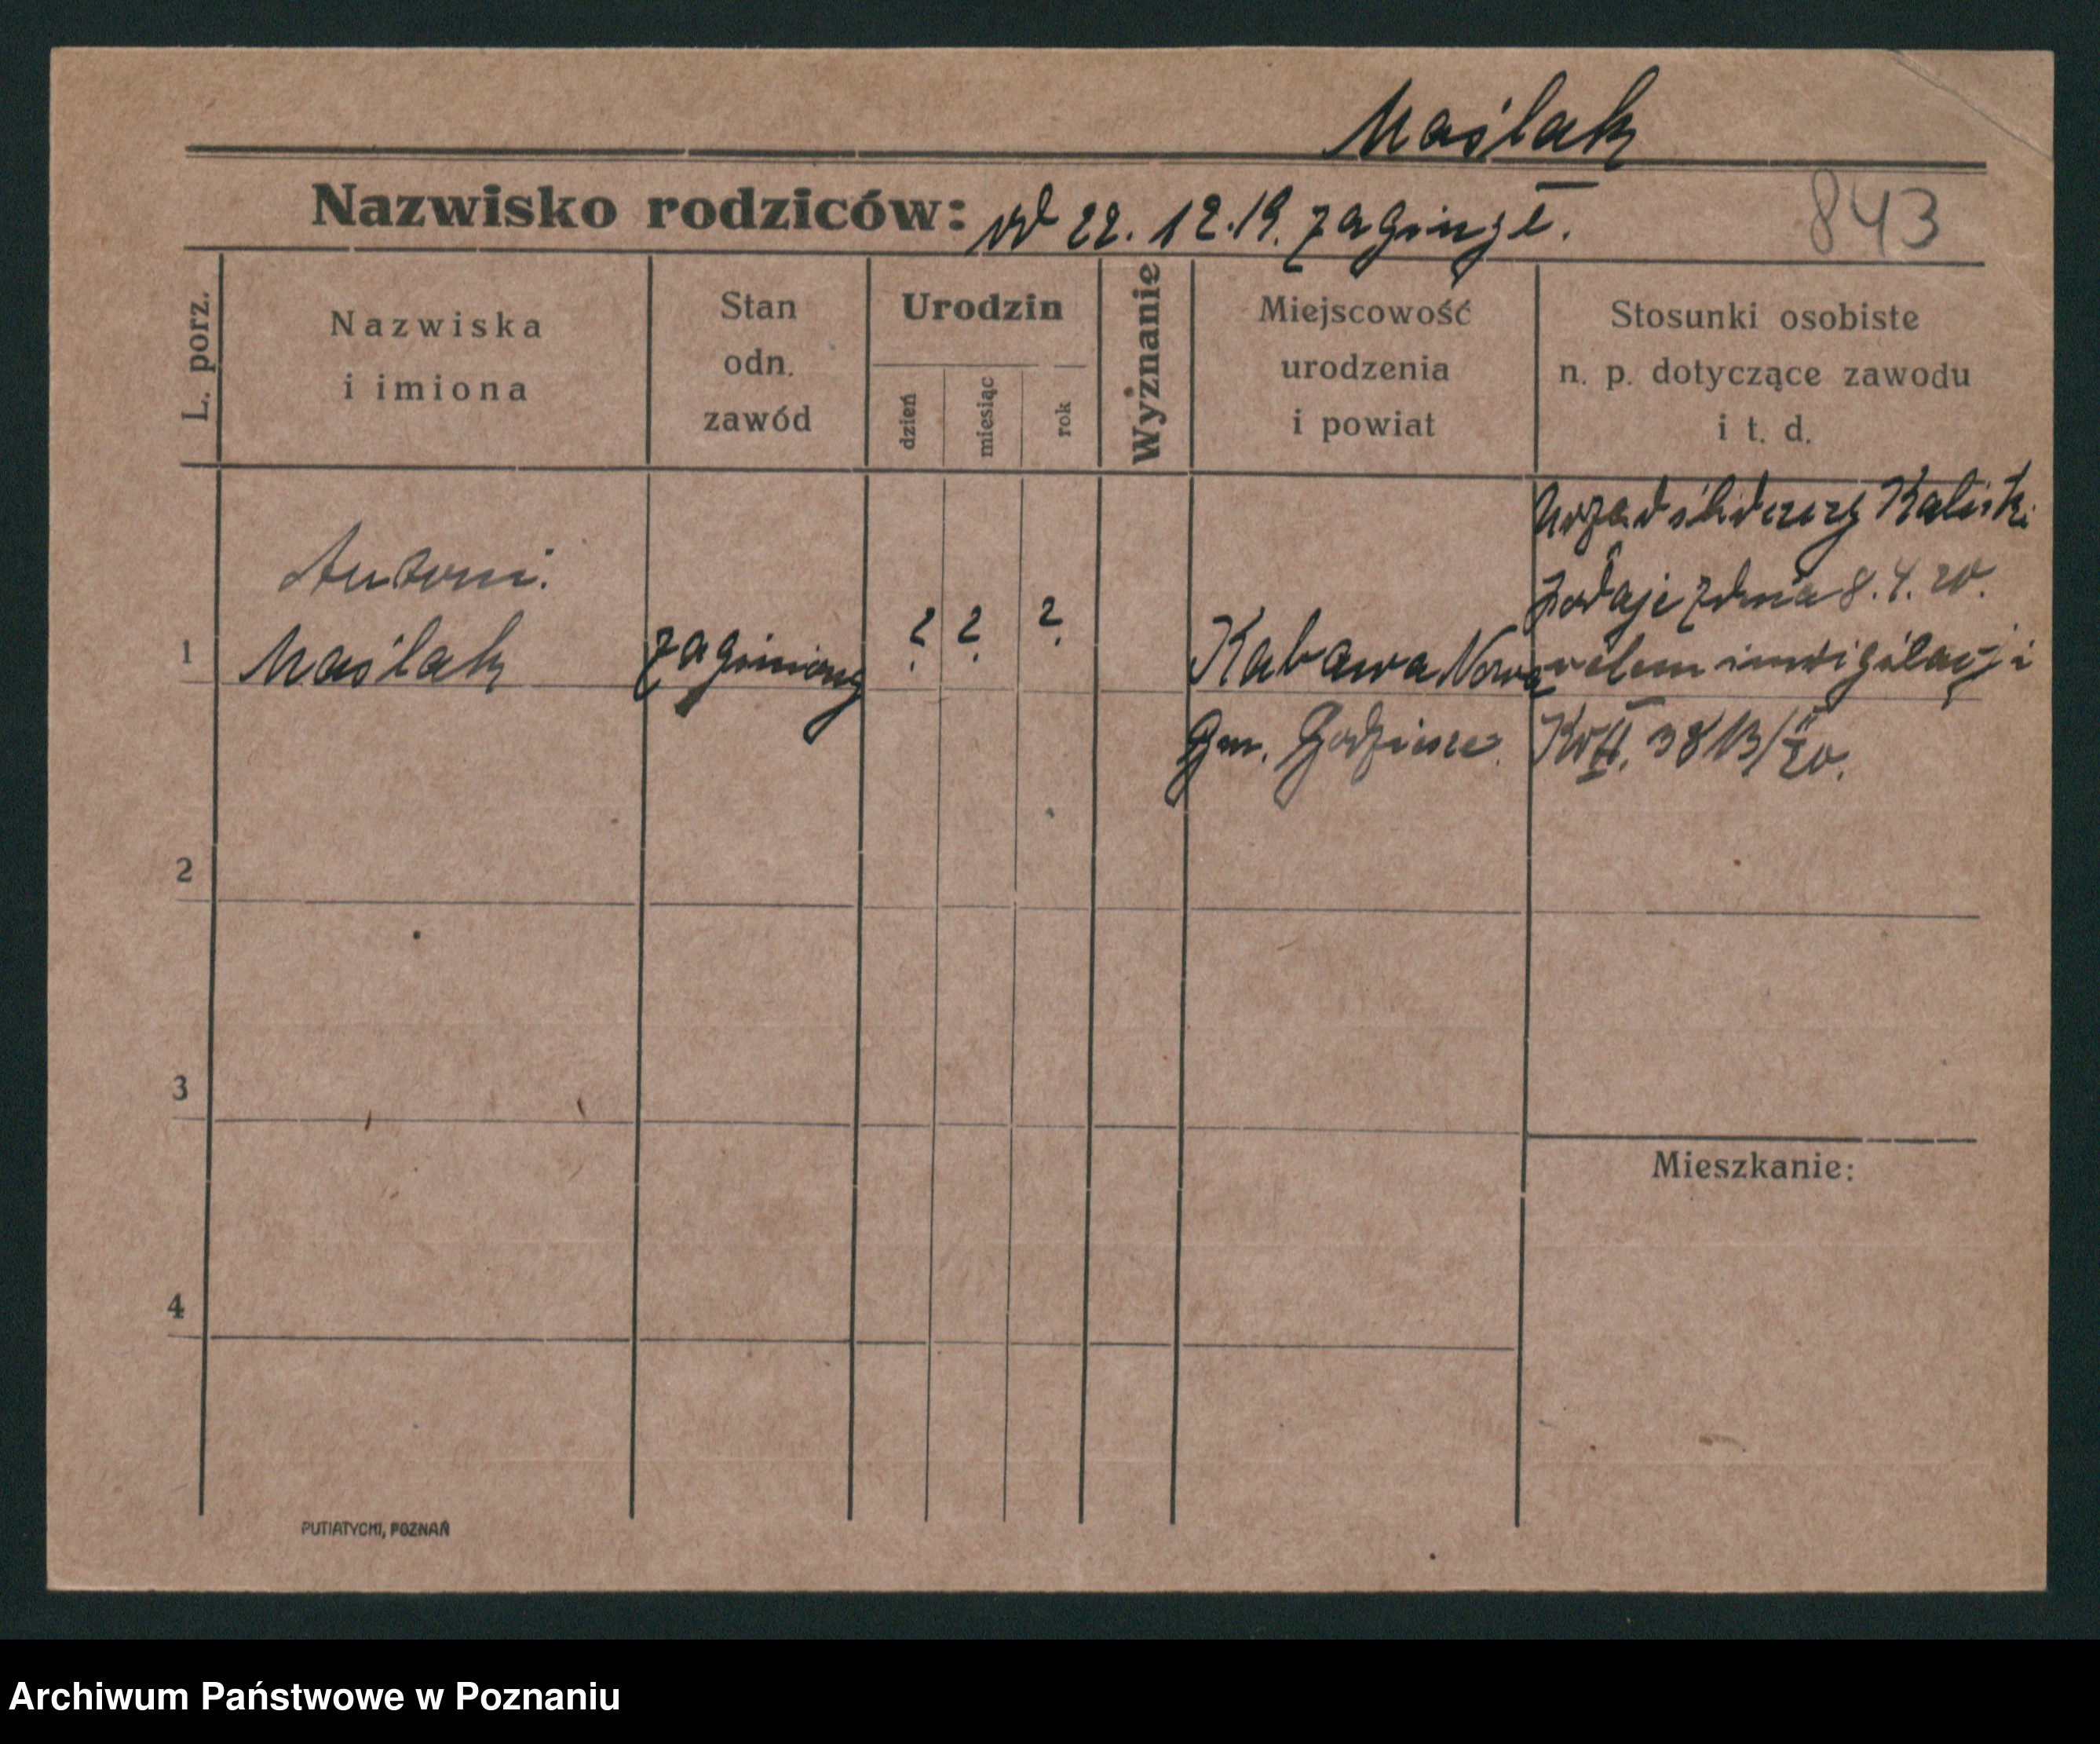 Maślak
Nazwisko rodziców: od 22.12.19. zaginął.
843
L. porz.
Nazwiska
i imiona
Stan
odn.
zawód
Urodzin
dzień
miesiąc
rok
Wyznanie
Miejscowość
urodzenia
i powiat
Stosunki osobiste
n. p. dotyczące zawodu
i t. d.
1
Antoni.
Maślak
zaginiony
? ? ?
Kabawa Nowa
gm. Godziesze.
Urząd śledczy Kaliski
podaje z dnia 8.4.20.
celem inwigilacji
II. 3813/20.
2
3
4
Mieszkanie:
PUTIATYCKI, POZNAŃ
Archiwum Państwowe w Poznaniu